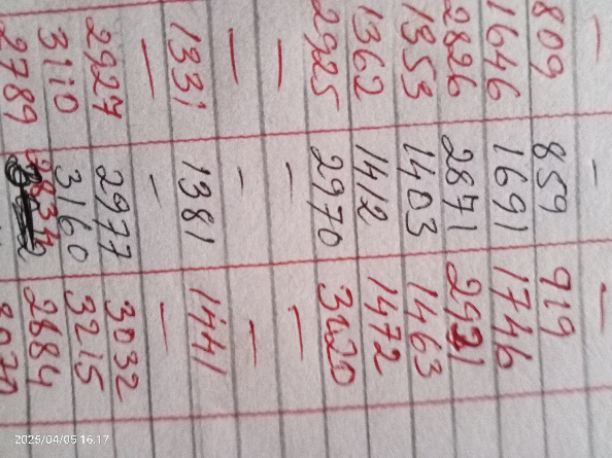 — – —
809 859 919
1646 1691 1746
2826 2871 2921
1353 1403 1463
1362 1412 1472
2925 2970 3020
— – —
— – —
1331 1381 1441
— – —
2927 2977 3032
3110 3160 3215
2789 2834 2884
2025/04/05 16.17